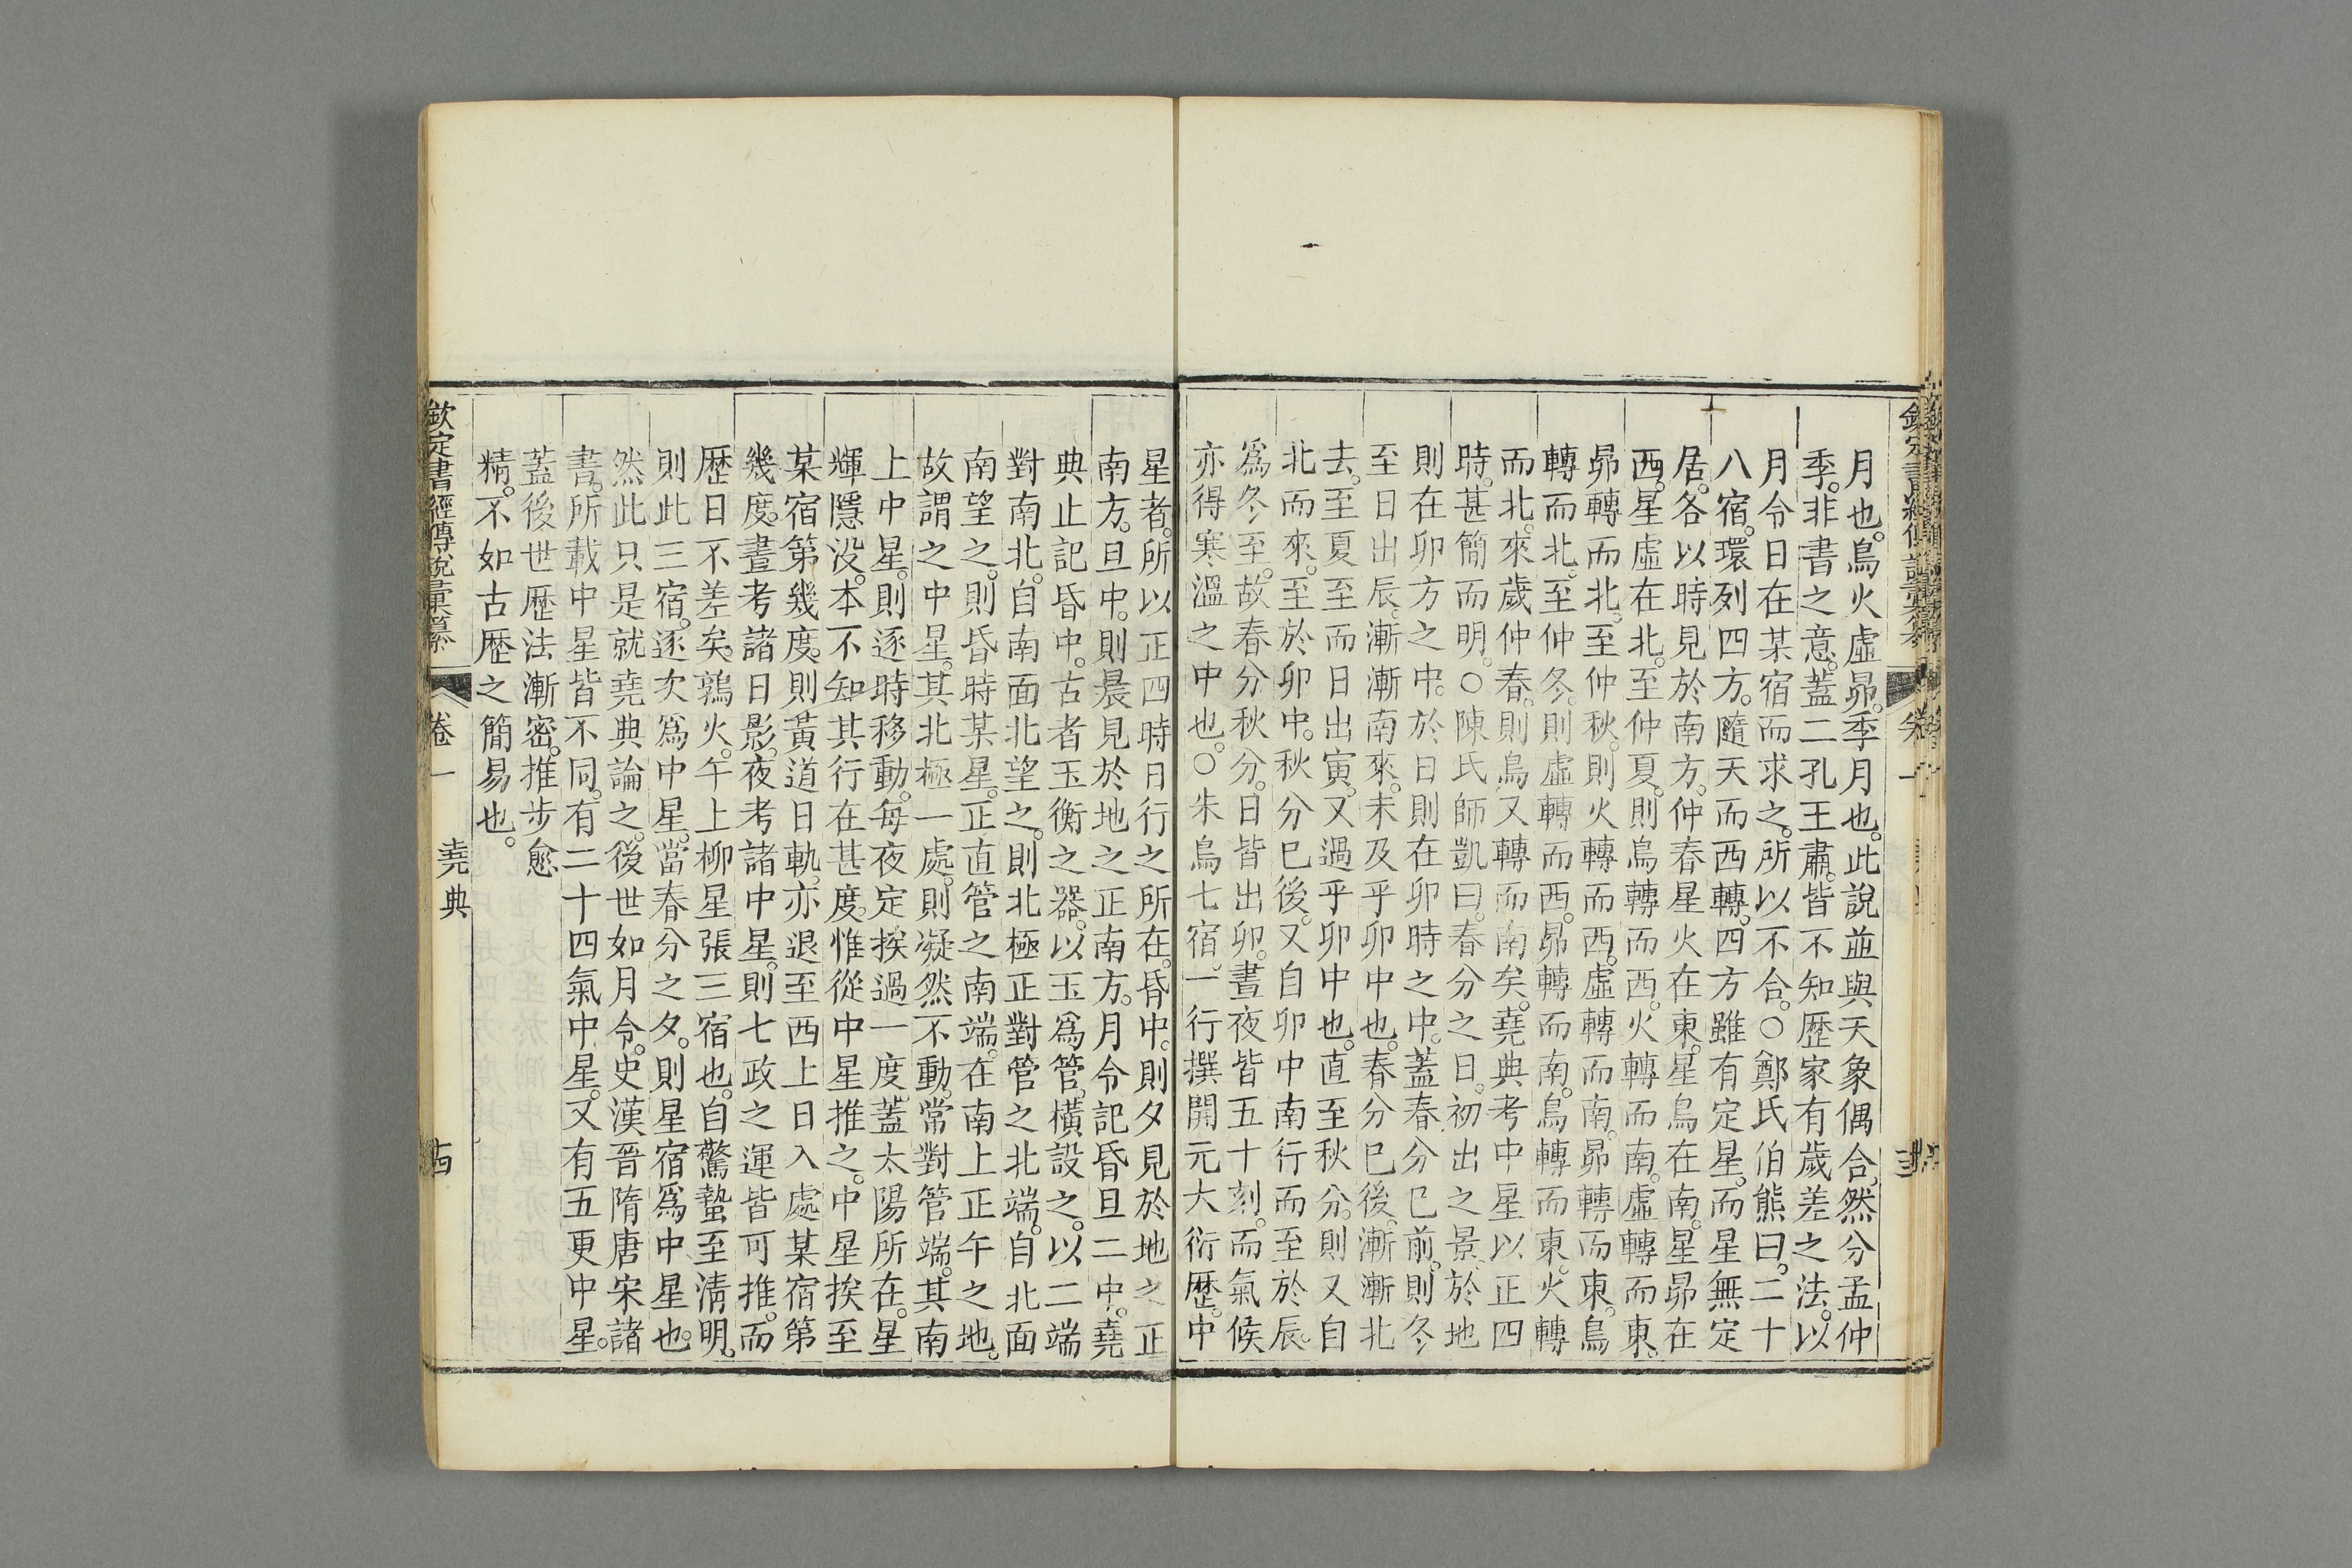 月也。鳥火虛昴。季月也。此說並與天象偶合。然分孟仲
季。非書之意。蓋二孔王肅。皆不知歷家有歲差之法。以
月令日在某宿而求之。所以不合。○鄭氏伯熊曰。二十
八宿。環列四方。隨天而西轉。四方雖有定星。而星無定
居。各以時見於南方。仲春星火在東。星鳥在南。星昴在
西。星虛在北。至仲夏。則鳥轉而西。火轉而南。虛轉而東。
昴轉而北。至仲秋。則火轉而西。虛轉而南。昴轉而東。鳥
轉而北。至仲冬。則虛轉而西。昴轉而南。鳥轉而東。火轉
而北。來歲仲春。則鳥又轉而南矣。堯典考中星以正四
時。甚簡而明。○陳氏師凱曰。春分之日。初出之景。於地
則在卯方之中。於日則在卯時之中。蓋春分已前。則冬
至日出辰。漸漸南來。未及乎卯中也。春分已後。漸漸北
去。至夏至而日出寅。又過乎卯中也。直至秋分。則又自
北而來。至於卯中。秋分已後。又自卯中南行而至於辰。
爲冬至。故春分秋分。日皆出卯。晝夜皆五十刻。而氣候
亦得寒溫之中也。○朱鳥七宿。一行撰開元大衍歷。中
星者。所以正四時日行之所在。昏中。則夕見於地之正
南方。旦中。則晨見於地之正南方。月令記昏旦二中。堯
典止記昏中。古者玉衡之器。以玉爲管。橫設之。以二端
對南北。自南面北望之。則北極正對管之北端。自北面
南望之。則昏時某星。正直管之南端。在南上正午之地。
故謂之中星。其北極一處。則凝然不動。常對管端。其南
上中星。則逐時移動。每夜定挨過一度。蓋太陽所在。星
輝隱没。本不知其行在甚度。惟從中星推之。中星挨至
某宿第幾度。則黃道日軌。亦退至西上日入處某宿第
幾度。晝考諸日影。夜考諸中星。則七政之運皆可推。而
歷日不差矣。鶉火。午上柳星張三宿也。自驚蟄至淸明。
則此三宿。逐次爲中星。當春分之夕。則星宿爲中星也。
然此只是就堯典論之。後世如月令。史漢晉隋唐宋諸
書。所載中星皆不同。有二十四氣中星。又有五更中星。
蓋後世歷法漸密。推步愈
精。不如古歷之簡易也。
欽定書經傳說彙纂 卷一 堯典 十四